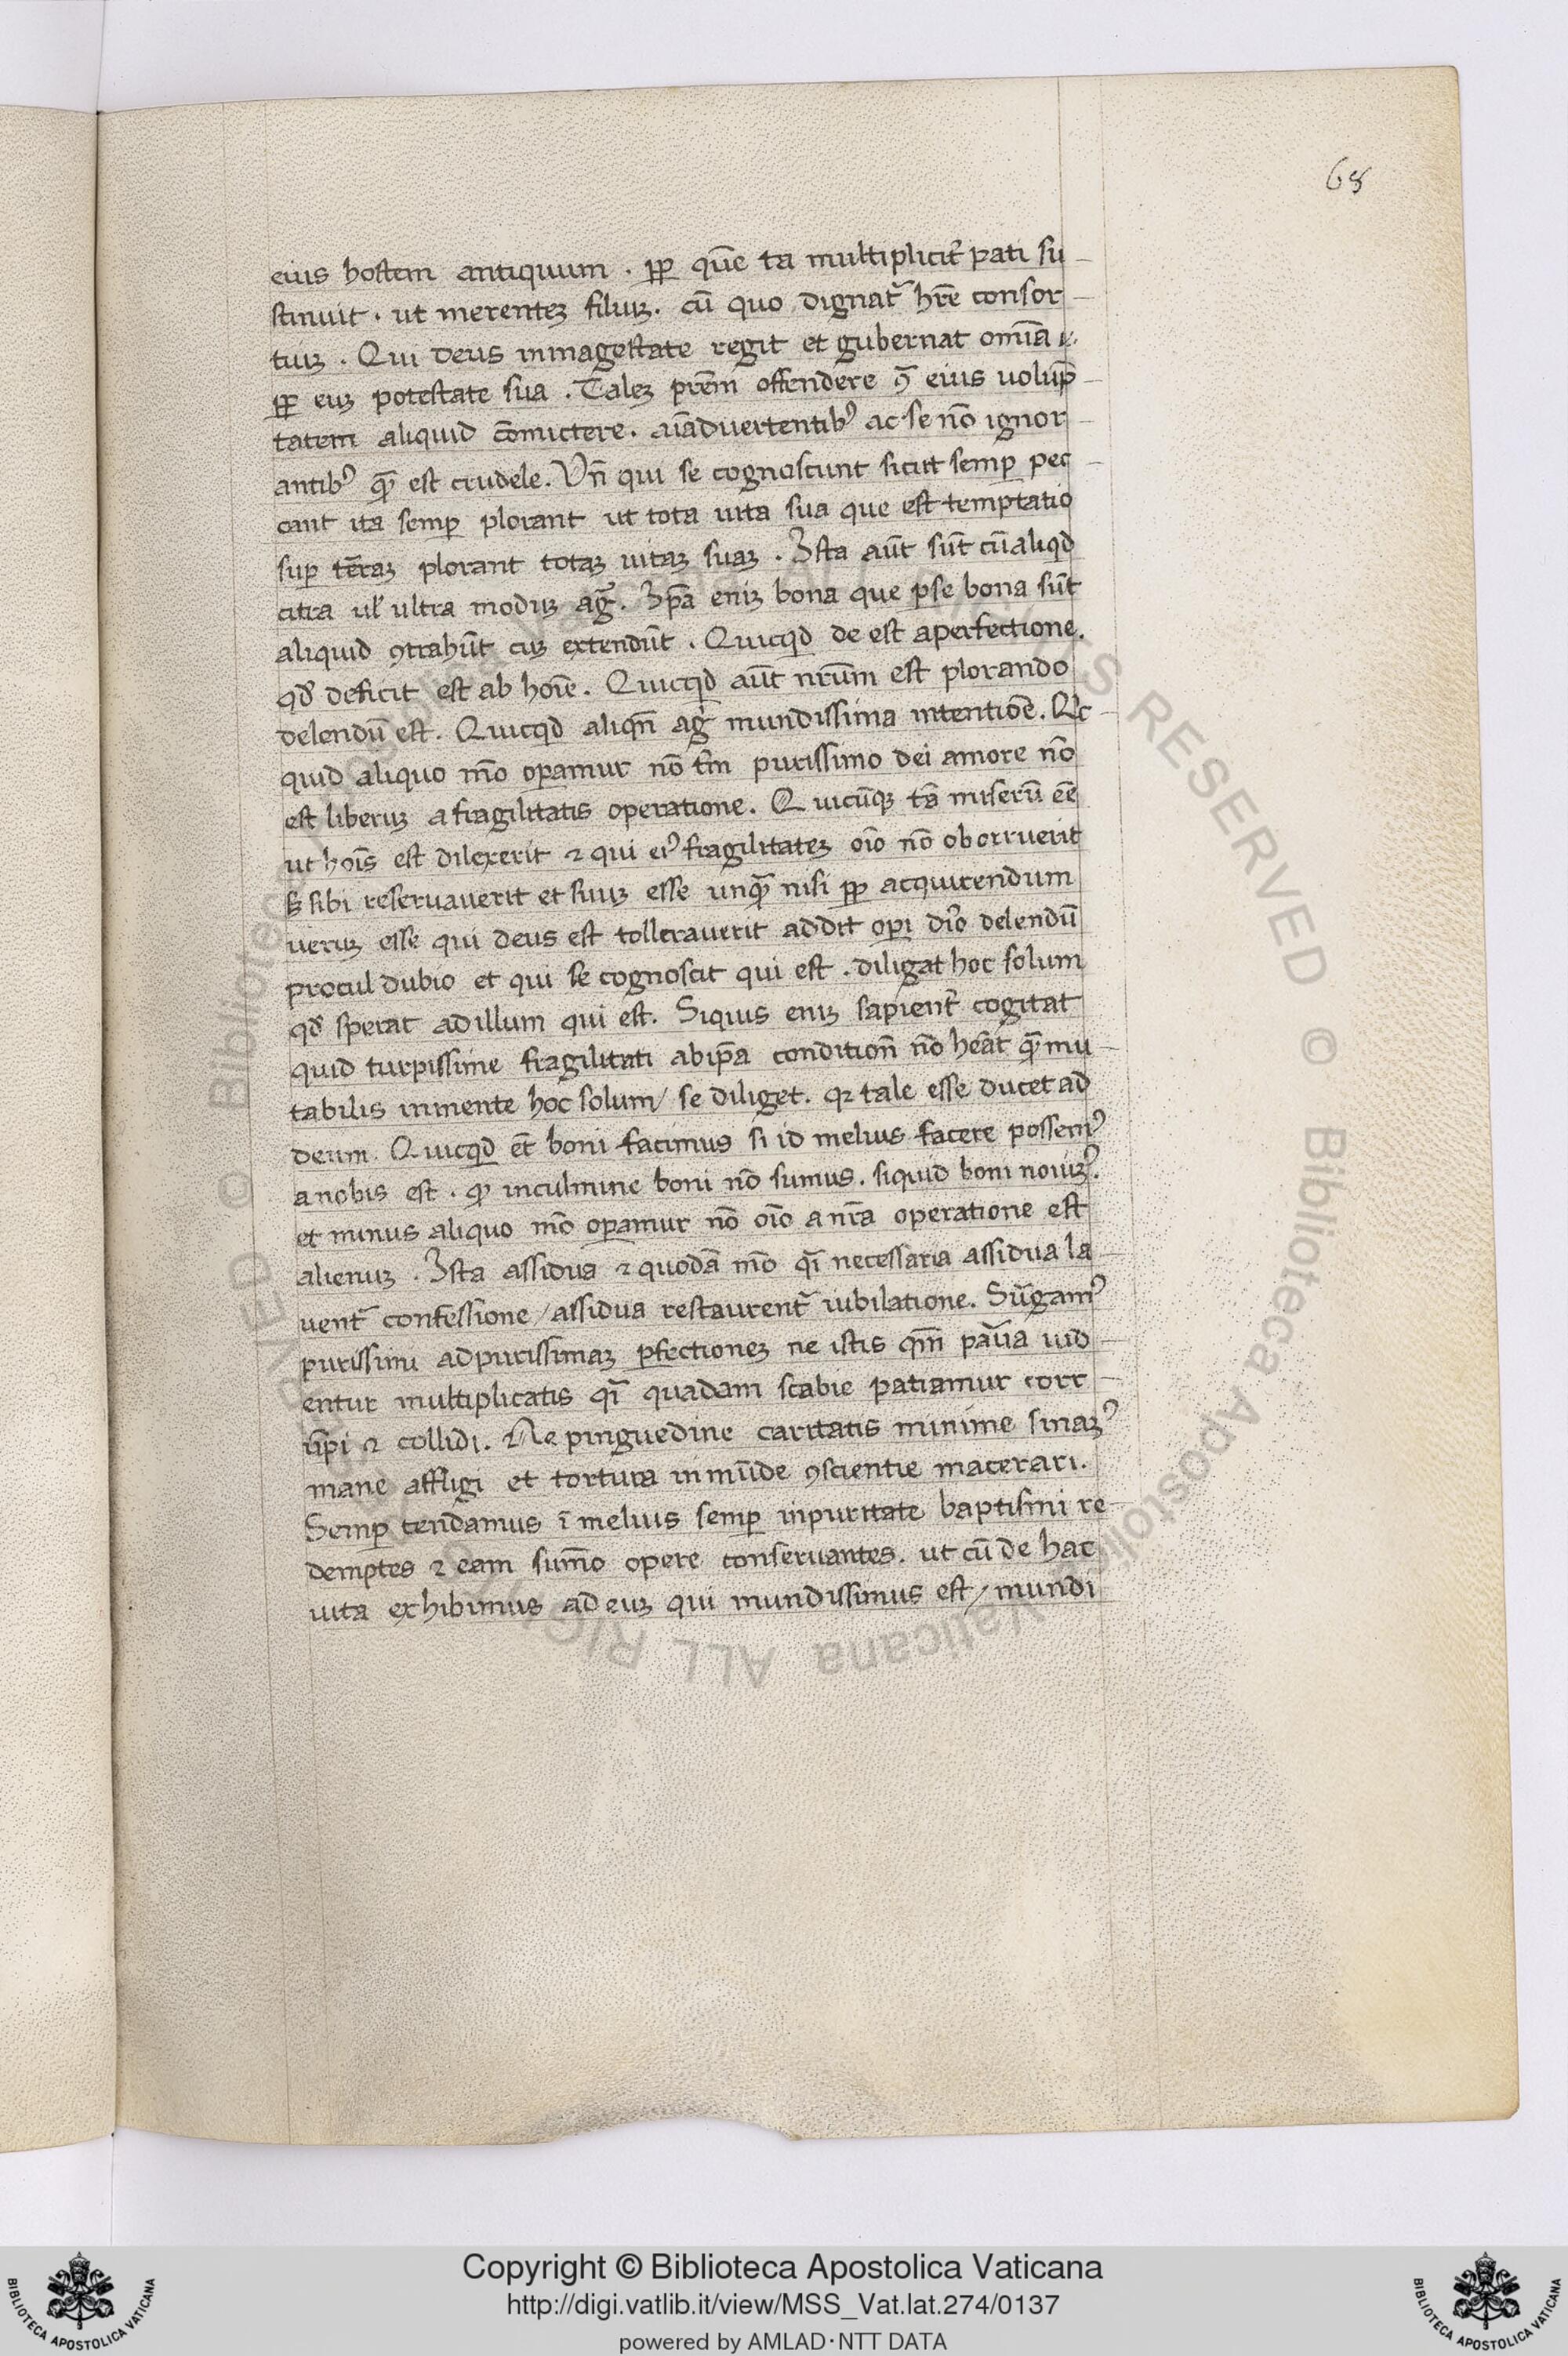 68
eius hostem antiquum . ꝓp̱ quē ta multiplicit᷑ pati su
stinuit . ut merenteꝫ filiuꝫ . cū quo dignat᷑ hr̄e consor
tiuꝫ . Qui deus inmagestate regit et gubernat om̄ia
eiuꝫ potestate sua . Taleꝫ pr̄em offendere ꝯ̄ eius uolup̄
tatem aliquid cōmictere . aīaduertentibꝰ ac se nō ignor
antibꝰ qᷓ est crudele . Vn̄ qui se cognoscunt sicut semꝑ pec
cant ita semꝑ plorant ut tota uita sua que est temptatio
suꝑ terraꝫ plorant totaꝫ uitaꝫ suaꝫ . Ista aūt sūt cū aliqd̄
citra ul̓ ultra moduꝫ ag̃ . Ip̄a eniꝫ bona que ꝑse bona sūt
aliquid ꝯtrahūt cuꝫ extendūt . Quicqd̄ de est aperfectione .
qd̓ deficit est ab hoīe . Quicqd̄ aūt nr̄um est plorando
delendū est . Quicqd̄ aliqn̄ ag̃ mundissima intentiōe . Qc
quid aliquo mō oꝑamur nō tm̄ purissimo dei amore nō
est liberuꝫ a fragilitatis operatione . Quicūqꝫ tā miserū eē
ut hoīs est dilexerit ⁊ qui eiꝰ fragilitateꝫ oīo nō oborruerit
sꝫ sibi reseruauerit et suuꝫ esse unqᷓ nisi ꝓp̱ acquirendum
ueruꝫ esse qui deus est tollerauerit addit oꝑi dīo delendū
procul dubio et qui se cognoscit qui est . diligat hoc solum
qd̓ sperat ad illum qui est . Siquis eniꝫ sapient᷑ cogitat
quid turpissime fragilitati abip̄a condition̄ nō heāt qᷓ mu
tabilis inmente hoc solum / se diliget . qꝛ tale esse ducet ad
deum . Quicqd̄ et̄ boni facimus si id melius facere possemꝰ
a nobis est . qꝛ inculmine boni nō sumus . siquid boni nouiꝫꝰ .
et minus aliquo mō oꝑamur nō oīo a nr̄a operatione est
alienuꝫ . Ista assidua ⁊ quodā mō qi̅ necessaria assidua la
uent᷑ confessione / assidua restaurent᷑ iubilatione . Sūgamꝰ
purissimi adpurissimaꝫ ꝑfectioneꝫ ne istis qm̄ parua uid
entur multiplicatis qi̅ quadam scabie patiamur corr
ūpi ⁊ collidi . Ne pinguedine caritatis minime sinaꝫꝰ
mane affligi et tortura inmūde ꝯscientie macerari .
Semꝑ tendamus ī melius semꝑ inpuritate baptismi re
demptes ⁊ eam sum̄o opere conseruantes . ut cū de hac
uita exhibimus ad euꝫ qui mundissimus est / mundi
Copyright © Biblioteca Apostolica Vaticana
http://digi.vatlib.it/view/MSS_Vat.lat.274/0137
powered by AMLAD·NTT DATA